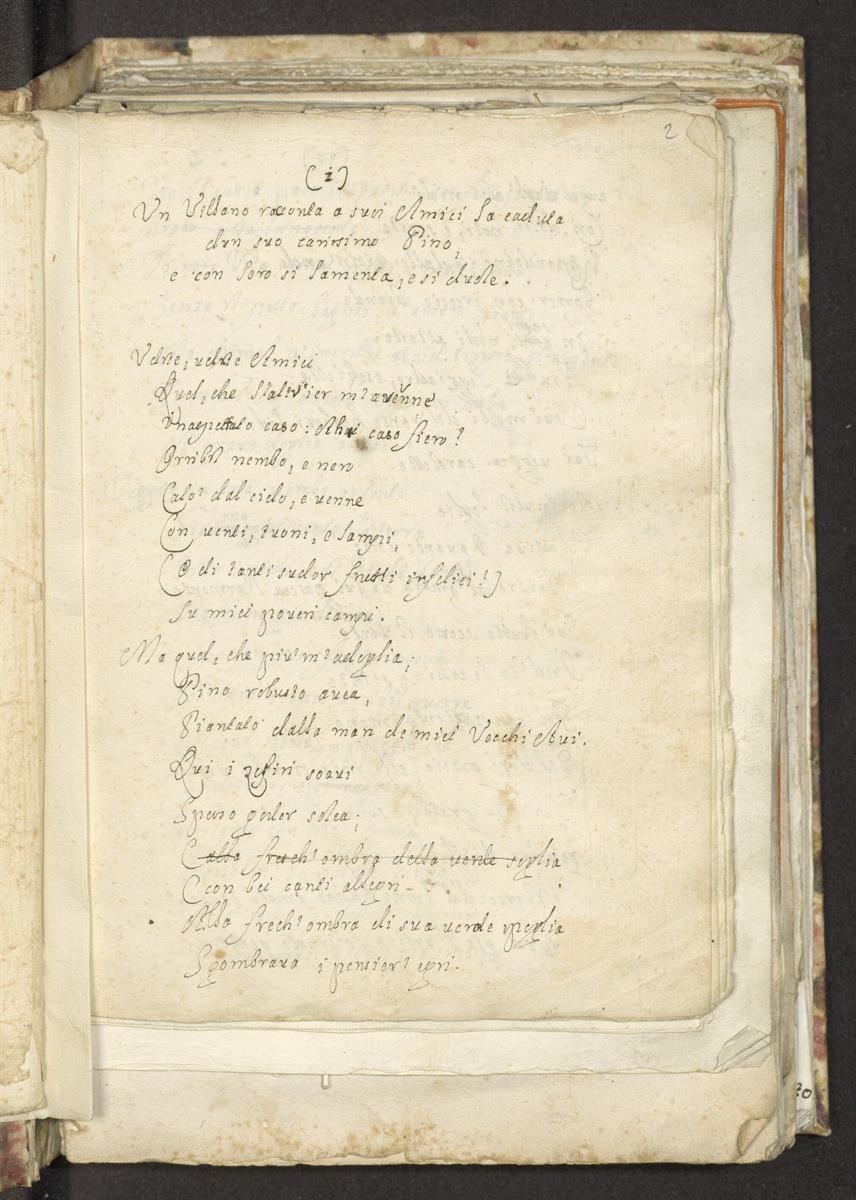 2
(1)
Un Villano racconta a suoi Amici la caduta
d'un suo carissimo Pino,
e con loro si lamenta, e si duole.
Udite, udite Amici
Quel, che l'altr'ier m'avenne
Inaspettato caso: Ahi caso fiero!
Orribil nembo, e nero
Calo' dal cielo, e venne
Con venti, tuoni, e lampi,
(O di tanti sudor frutti infelici!)
Su miei poveri campi.
Ma quel, che piu' m'adoglia;
Pino robusto avea,
Piantato dalla man de miei Vecchi Avi.
Qui i zefiri soavi
Spesso goder solea;
E alla fresch'ombra della verde foglia
E con bei canti allegri
Alla fresch'ombra di sua verde spoglia
Sgombrava i pensier' egri.
20